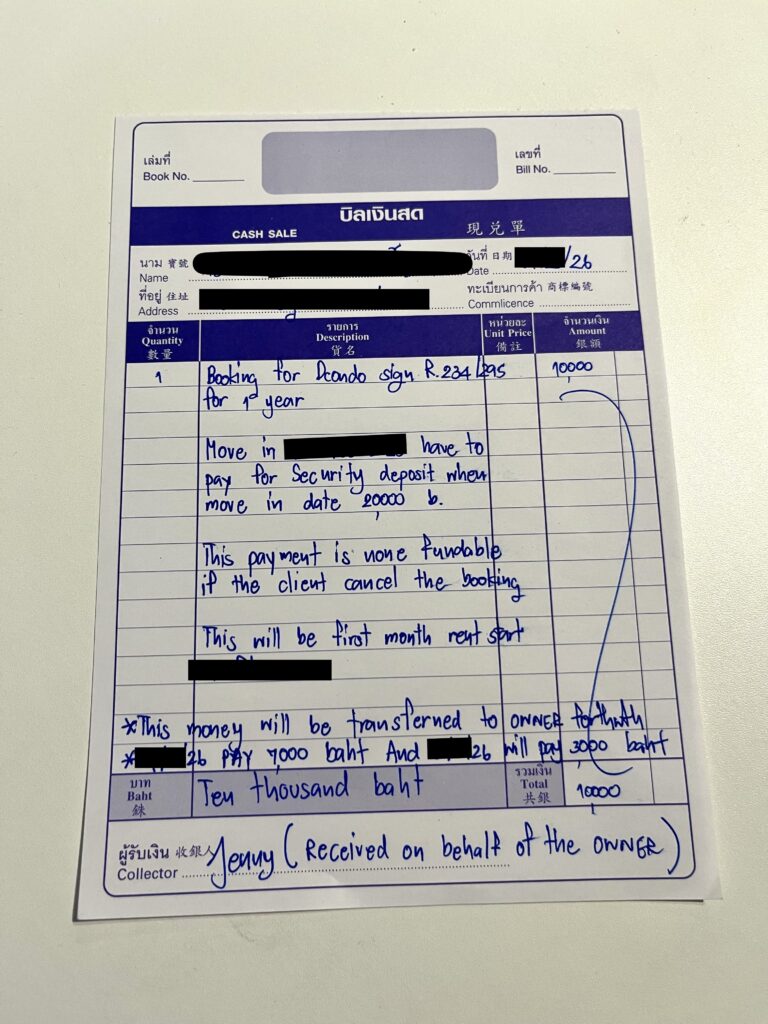 เล่มที่
Book No.
เลขที่
Bill No.
บิลเงินสด
CASH SALE 現兌單
นาม 寶號
Name
วันที่ 日期 /26
Date
ที่อยู่ 住址
Address
ทะเบียนการค้า 商標編號
Commlicence
จำนวน
Quantity
數量
รายการ
Description
貨名
หน่วยละ
Unit Price
備註
จำนวนเงิน
Amount
銀額
1 Booking for Dcondo sign R.234/295 10,000
for 1 year
Move in have to
pay for Security deposit when
move in date 20,000 b.
This payment is none fundable
if the client cancel the booking
This will be first month rent start
*This money will be transferred to OWNER
* 26 PAY 7,000 baht And 26 will pay 3,000 baht
บาท
Baht
銖
Ten thousand baht
รวมเงิน
Total
共銀
10,000
ผู้รับเงิน 收銀人
Collector
Jenny (Received on behalf of the OWNER)